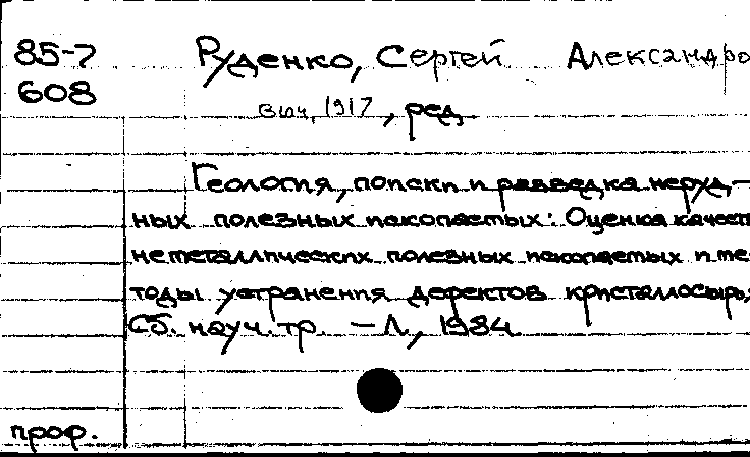 85-7 Руденко, Сергей Александро
608 вич, 1917, ред.
Геология, поиски и разведка неруд-
ных полезных ископаемых: Оценка качест
неметаллических полезных ископаемых и ме
тоды устранения дефектов кристаллосырь
Сб. науч. тр. – Л., 1984
проф.